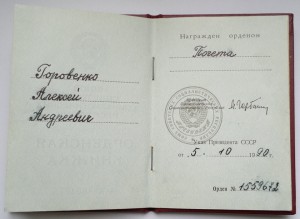 Горовенко
Алексей
Андреевич
Награжден орденом
Почета
Указ Президента СССР
от „ 5. 10 1990 г.
Орден № 1559672